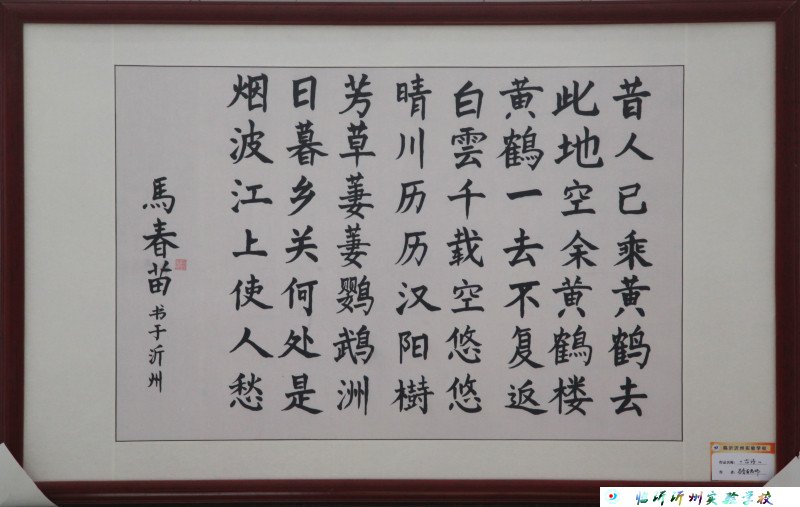 昔人已乘黄鹤去
此地空余黄鹤楼
黄鹤一去不复返
白雲千载空悠悠
晴川历历汉阳樹
芳草萋萋鹦鹉洲
日暮乡关何处是
烟波江上使人愁
馬春苗
书于沂州
临沂沂州实验学校